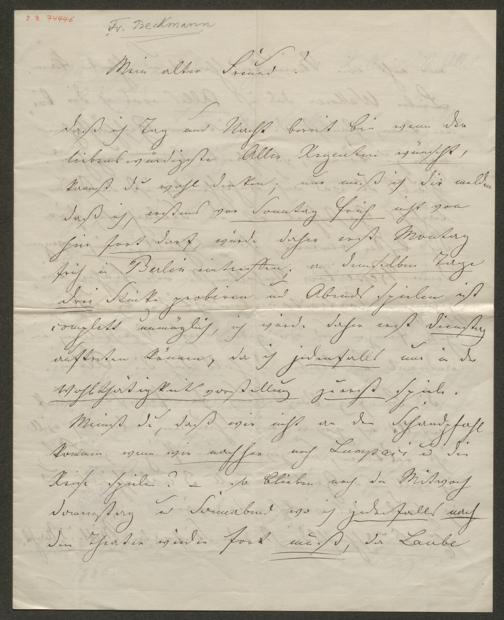 Fr. Beckmann
Mein alter Freund!
daß ich Tag und Nacht bereit bin wenn der
liebenswürdigste Aller Regenten wünscht,
kannst du wohl denken; nur muß ich dir melden
daß ich, erstens vor Sonntag früh nicht von
hier fort darf, würde daher erst Montag
früh in Berlin eintreffen; an demselben Tage
drei Stücke probieren und Abends spielen ist
complett unmöglich, ich würde daher erst Dienstag
auftreten können, da ich jedenfalls nur in der
Wohlthätigkeitsvorstellung zuerst spiele.
Meinst du, daß wir nicht an den Schandpfahl
kommen wenn wir nachher noch und die
Reise spielen? – es blieben noch der Mittwoch
Donnerstag u Sonnabend wo ich jedenfalls nach
dem Theater wieder fort muß, da Laube